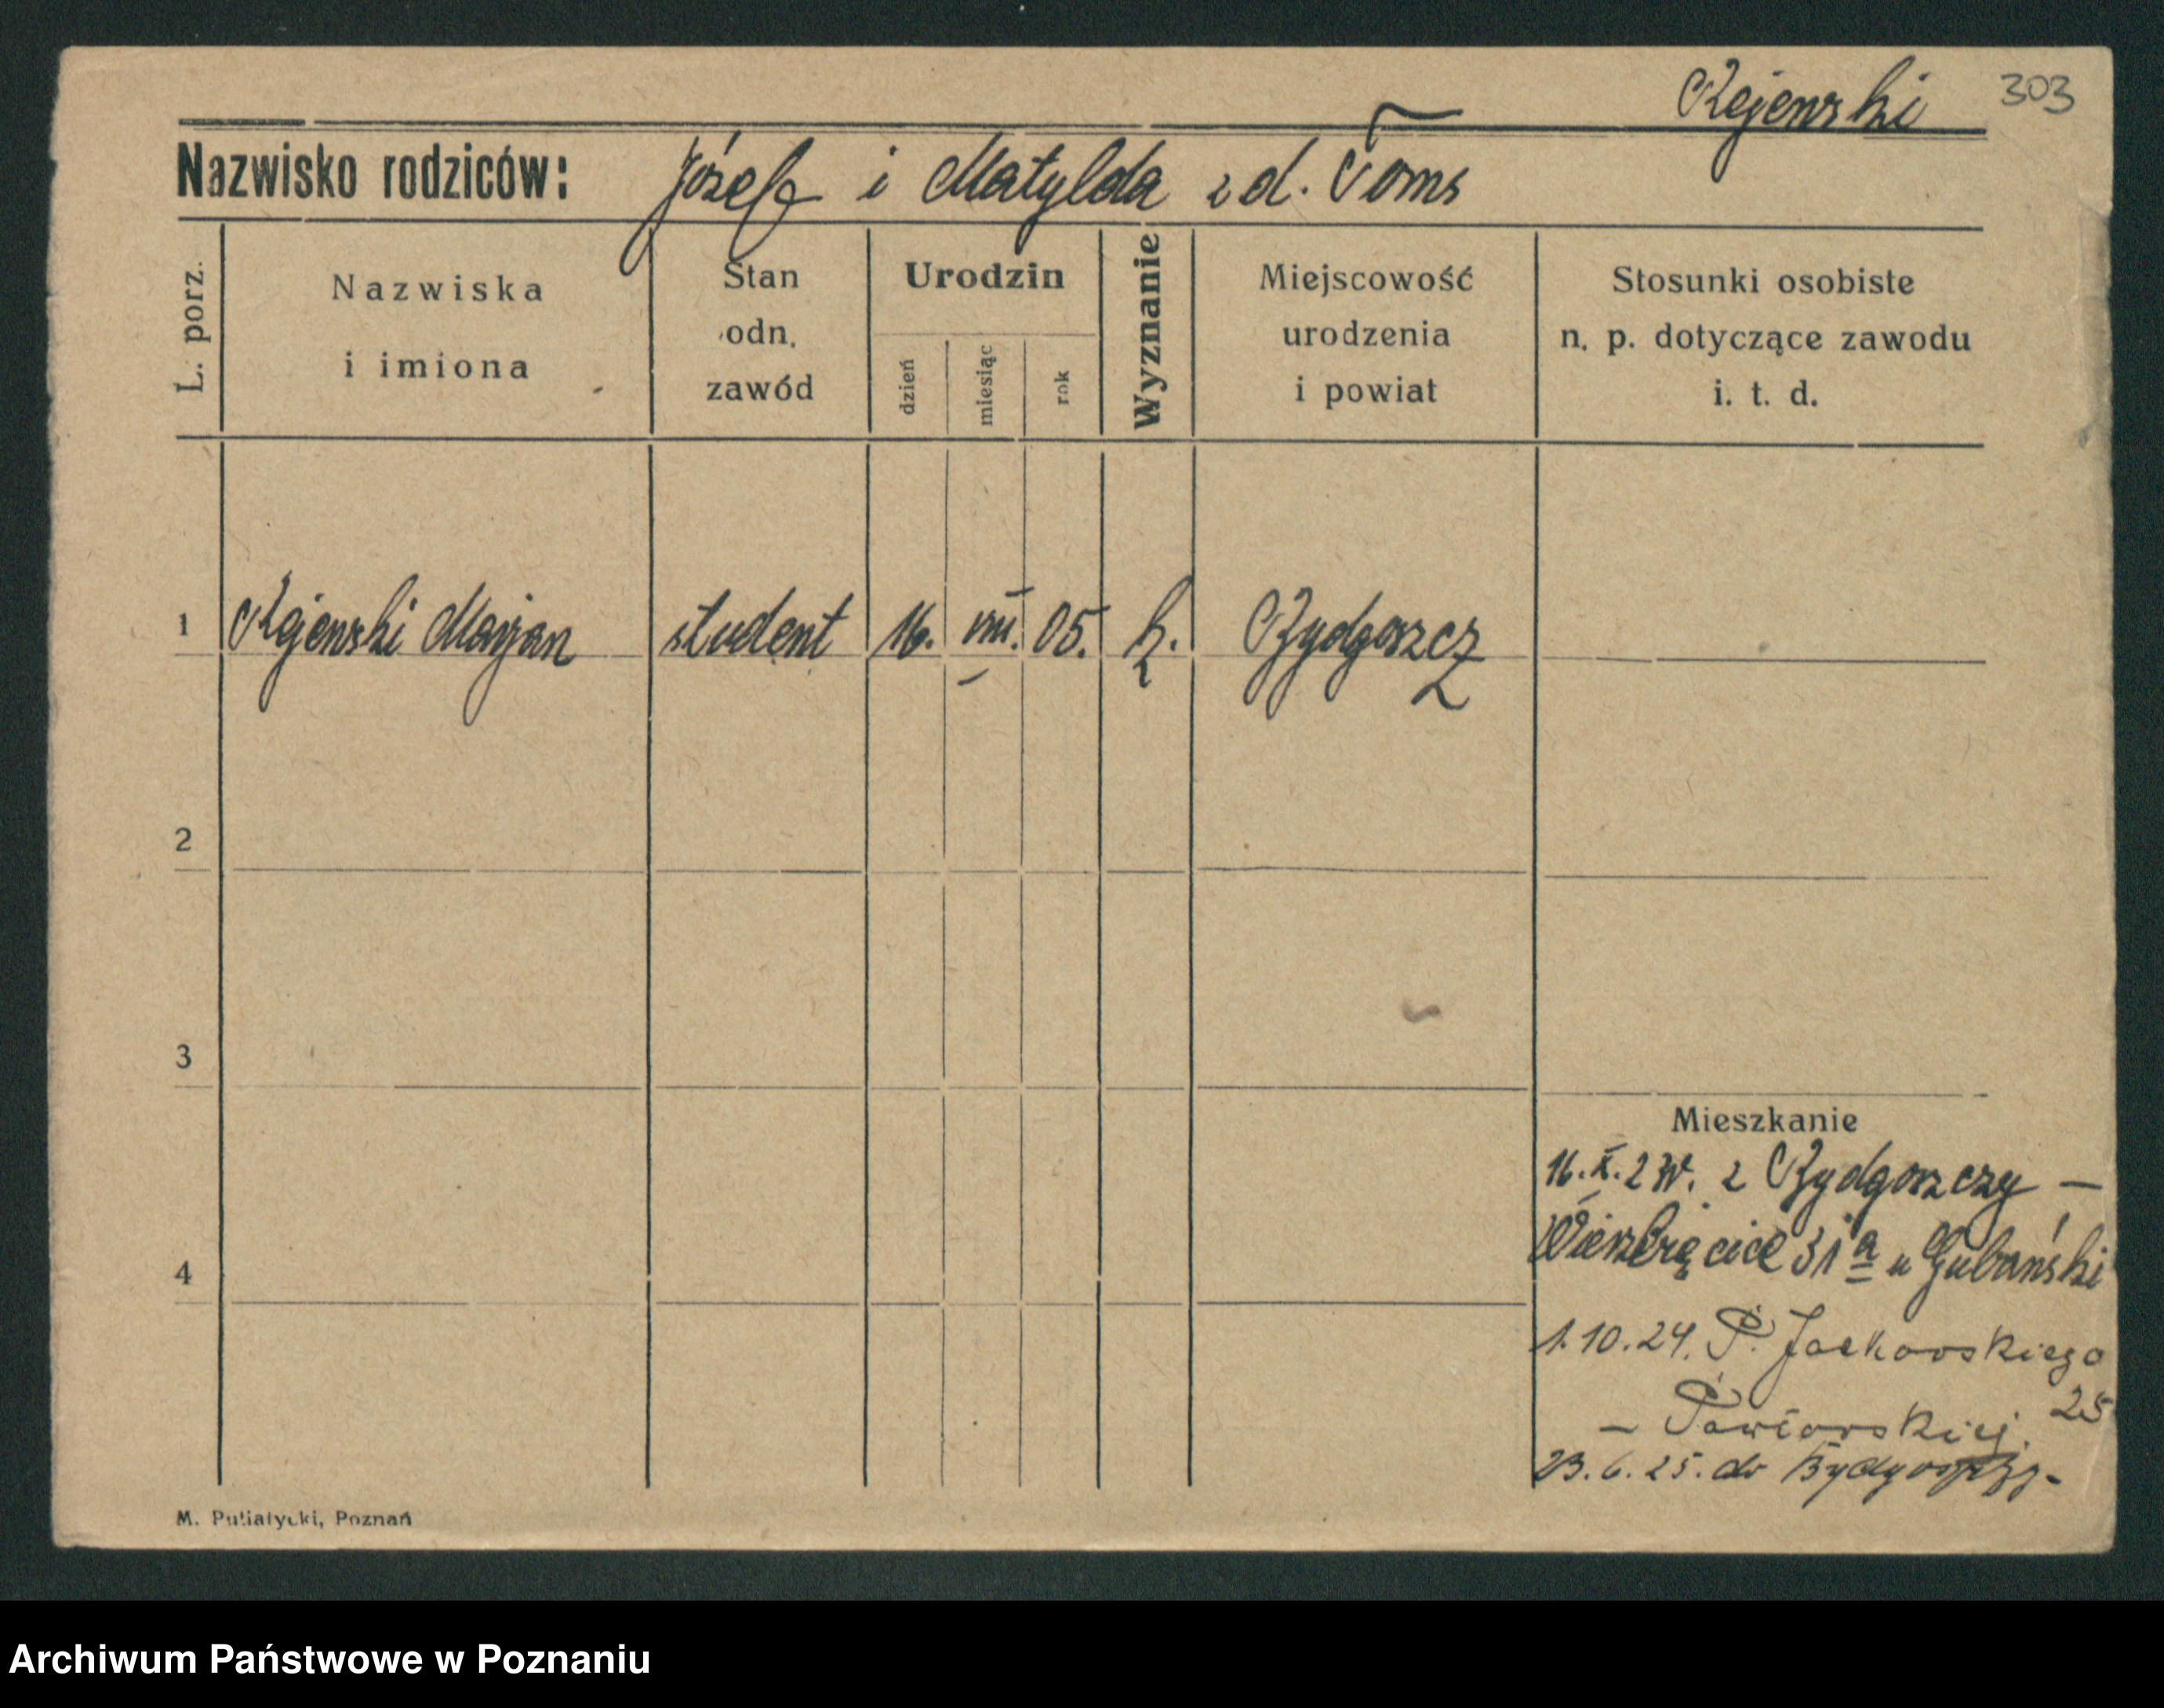 Rejewski 303
Nazwisko rodziców: Józef i Matylda z d. Toms
L. porz.
Nazwiska
i imiona
Stan
odn.
zawód
Urodzin
dzień
miesiąc
rok
Wyznanie
Miejscowość
urodzenia
i powiat
Stosunki osobiste
n. p. dotyczące zawodu
i. t. d.
1 Rejewski Marjan student 16. VIII. 05. k. Bydgoszcz
2
3
4
Mieszkanie
16. X. 2 z Bydgoszczy —
Wierzbięcice 31 a u Gubański
1.10.24. P. Jackowskiego
25
—
23.6.25. do Bydgoszczy-
M. Putiatycki, Poznań
Archiwum Państwowe w Poznaniu